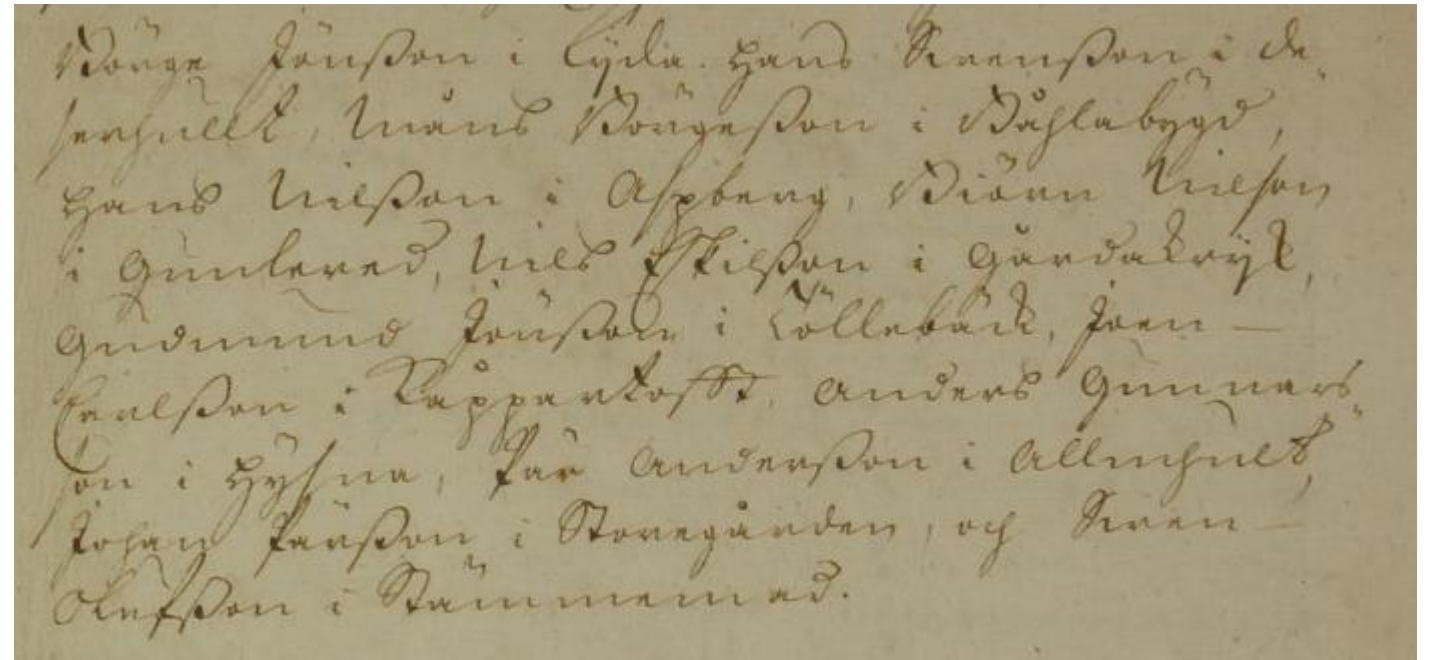 Börge Jönßon i Lyda. Hans Svenßon i De„
serhullt, Måns Börgeßon i Båhlabygd,
Hans Nilßon i Aspberg, Biörn Nilson
i Gunlered, Nils Eskilßon i Gårdakryk,
Gudmund Jönßon i Löllebäck, Joen —
Carlßon i Kapparkofft, Anders Gunnars„
son i Hyssna, Pär Anderßon i Allmhult,
Johan Pärßon i Storegården, och Sven —
Olufßon i Stämmemad.